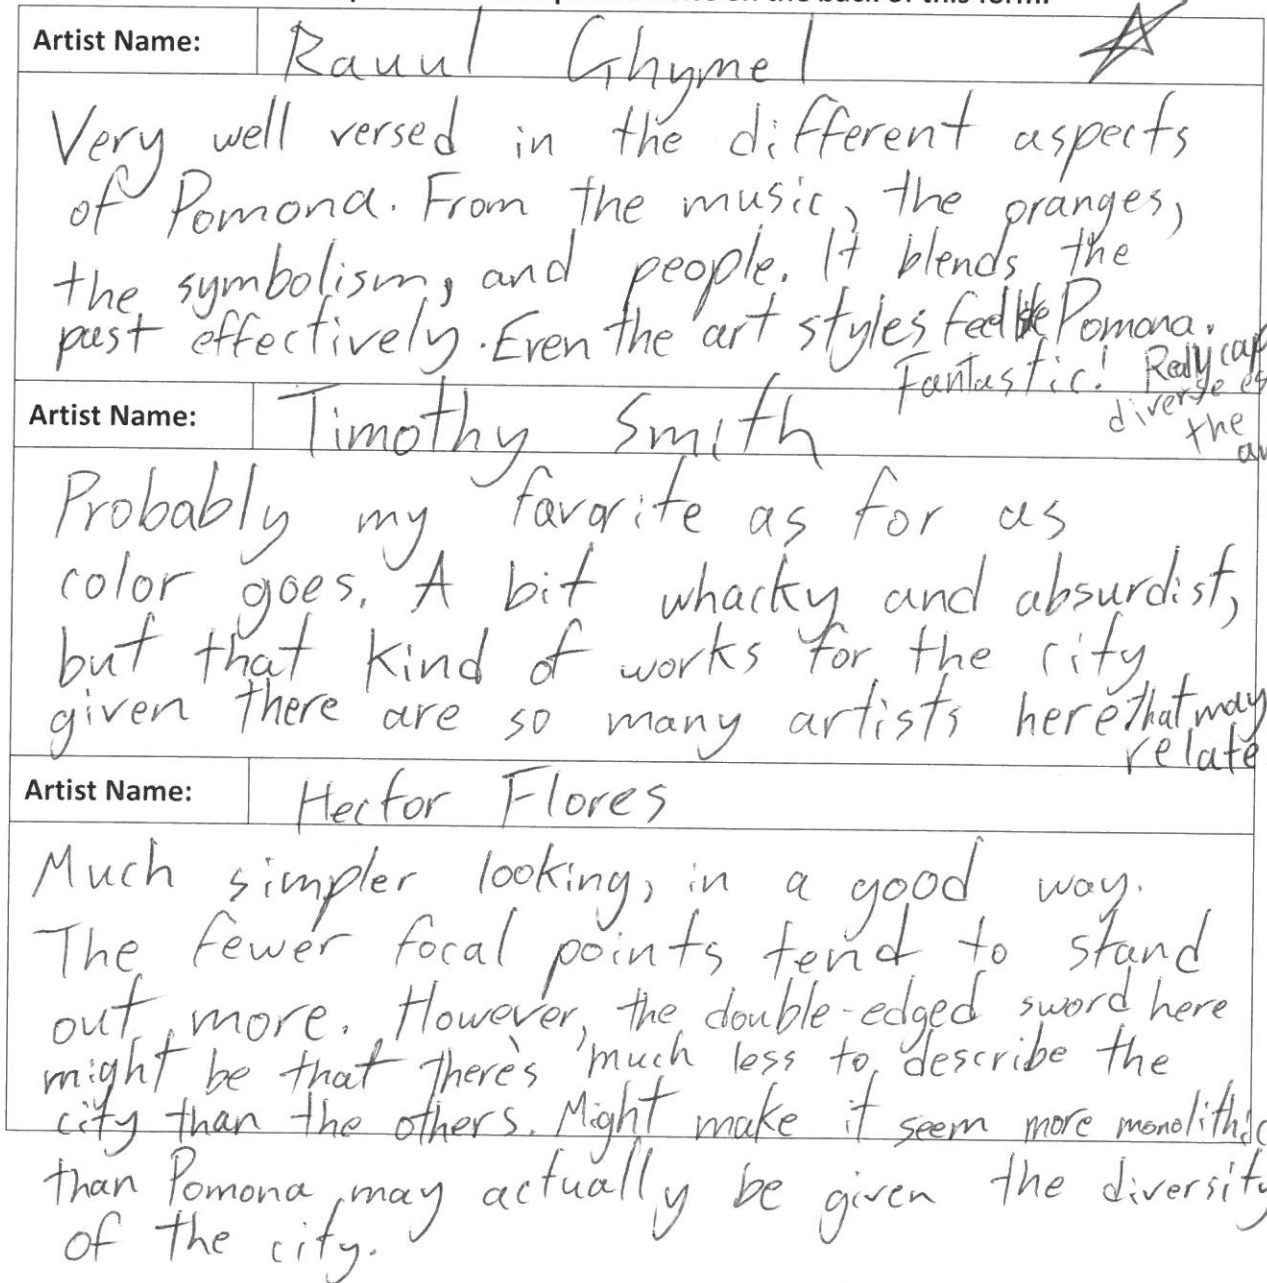 on the back of this form.
Artist Name: Rauul Ghymel
Very well versed in the different aspects
of Pomona. From the music, the oranges,
the symbolism, and people. It blends the
past effectively. Even the art styles feel like Pomona.
Fantastic! Really
diverse
the
Artist Name: Timothy Smith
Probably my favorite as for as
color goes. A bit whacky and absurdist,
but that kind of works for the city
given there are so many artists here that may
relate
Artist Name: Hector Flores
Much simpler looking, in a good way.
The fewer focal points tend to stand
out more. However, the double-edged sword here
might be that there's much less to describe the
city than the others. Might make it seem more monolithic
than Pomona may actually be given the diversity
of the city.